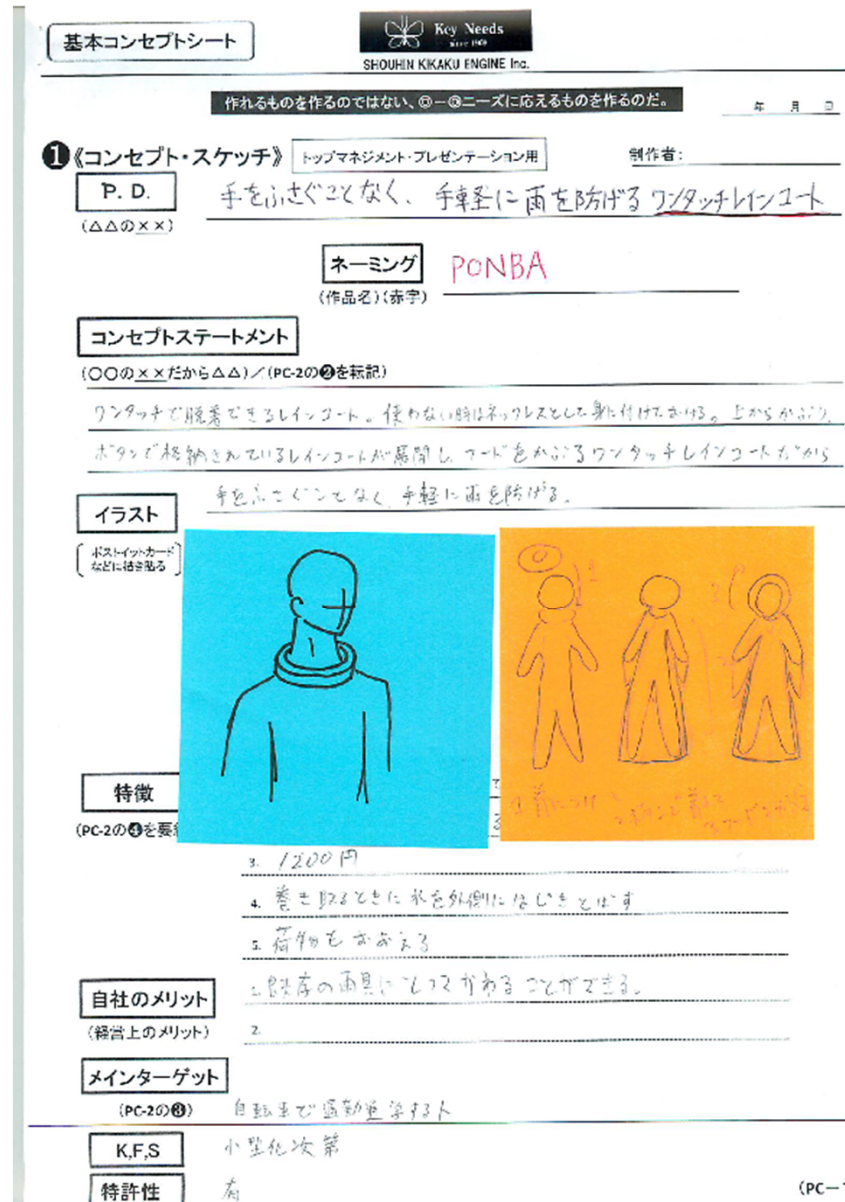 基本コンセプトシート
Key Needs
since 1969
SHOUHIN KIKAKU ENGINE Inc.
作れるものを作るのではない、◎-◎ニーズに応えるものを作るのだ。
年 月 日
❶《コンセプト・スケッチ》 トップマネジメント・プレゼンテーション用 制作者:
P. D. 手をふさぐことなく、手軽に雨を防げるワンタッチレインコート
(△△の××)
ネーミング PONBA
(作品名)(赤字)
コンセプトステートメント
(○○の××だから△△)/(PC-2の❷を転記)
ワンタッチで脱着できるレインコート。使わない時はネックレスとして身に付けておける。上からかぶり、
ボタンで格納されているレインコートが展開し、フードをかぶるワンタッチレインコートだから
手をふさぐことなく、手軽に雨を防げる。
イラスト
ポストイットカード
などに描き貼る
特徴
(PC-2の❹を要
①首につけ
②ボタンで着る
③フードを
3. 1200円
4. 巻き取るときに水を外側にはじきとばす
5. 荷物もおおえる
自社のメリット 1. 既存の雨具にとってかわることができる。
(経営上のメリット) 2.
メインターゲット
(PC-2の❸) 自転車で通勤通学する人
K,F,S 小型化次第
特許性 有
(PC-